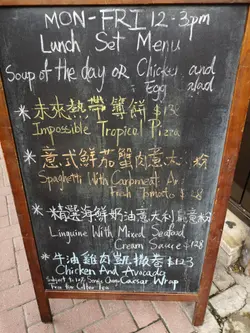 MON-FRI 12-3pm
Lunch Set Menu
Soup of the day OR Chicken and
Egg Salad
*未來熱帶薄餅 $1
Impossible Tropical Pizza
*意式鮮茄蟹肉意
Spaghetti With
Fresh Tomato $ 8
*精選海鮮奶油意大利
Linguine With Mixed Seafood
Cream Sauce $128
*牛油雞肉凱撒卷 $123
Chicken And Avocado
Subject to 10% Caesar Wrap
Free